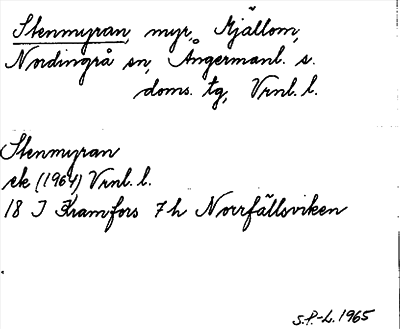 Stenmyran, myr, Mjällom,
Nordingrå sn, Ångermanl. s.
doms. tg, Vrnl. l.
Stenmyran
ek (1964) Vrnl. l.
18 J Kramfors 7h Norrfällsviken
S.P.-L. 1965